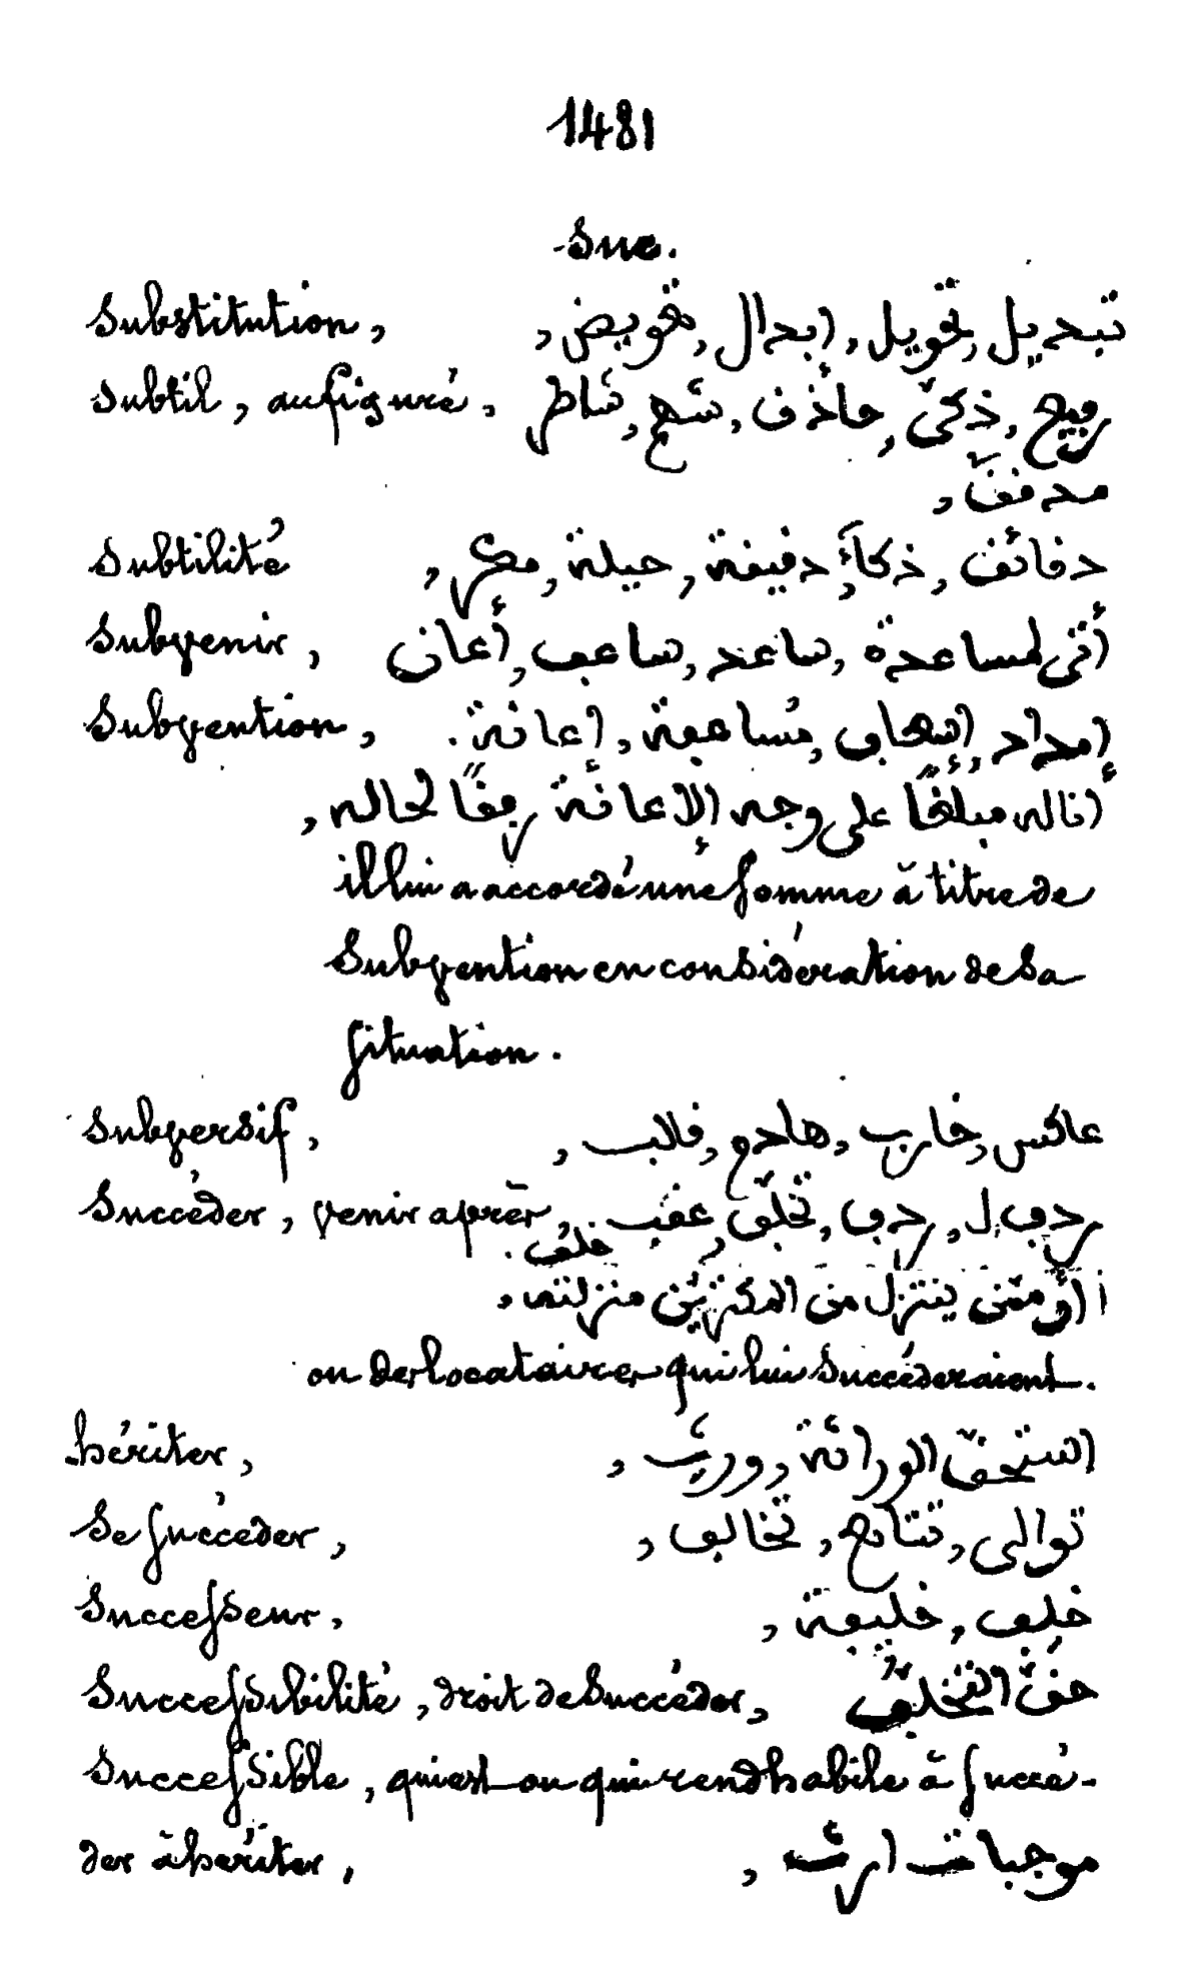 1481
Suc.
Substitution, تبديل, تحويل, إبدال, تعويض,
Subtil, au figuré, ربيح, ذكىّ, حاذق, شاطر
مدقّق,
Subtilité دقائق, ذكاء, دقيقة, حيلة, مكر,
Subvenir, أتى لمساعدة, ساعد, ساعف, أعان
Subvention, إمداد, إسعاف, مُساعفة, إعانة.
أناله مبلغًا على وجه الإعانة رفقًا لحاله,
il lui a accordé une somme à titre de
Subvention en considération de Sa
situation.
Subversif, عاكس, خارب, هادم, قالب,
Succéder, venir après, ردف ل, ردف, تخلّف, عقب
خلف.
أو ممّن ينتزل من المكتريين منزلته,
ou des locataires qui lui Succéderaient.
hériter, استحقّ الوراثة, ورث,
Se succéder, توالى, تتابع, تخالف,
Successeur, خلف, خليفة,
Successibilité, droit de Succéder, حقّ التخلّف
Successible, qui est ou qui rend habile à succé-
der à hériter, موجبات ارث,